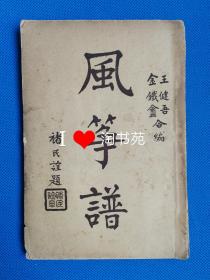 王健吾
金鐵盦合編
風箏譜
褚民誼題
【❤】淘书苑